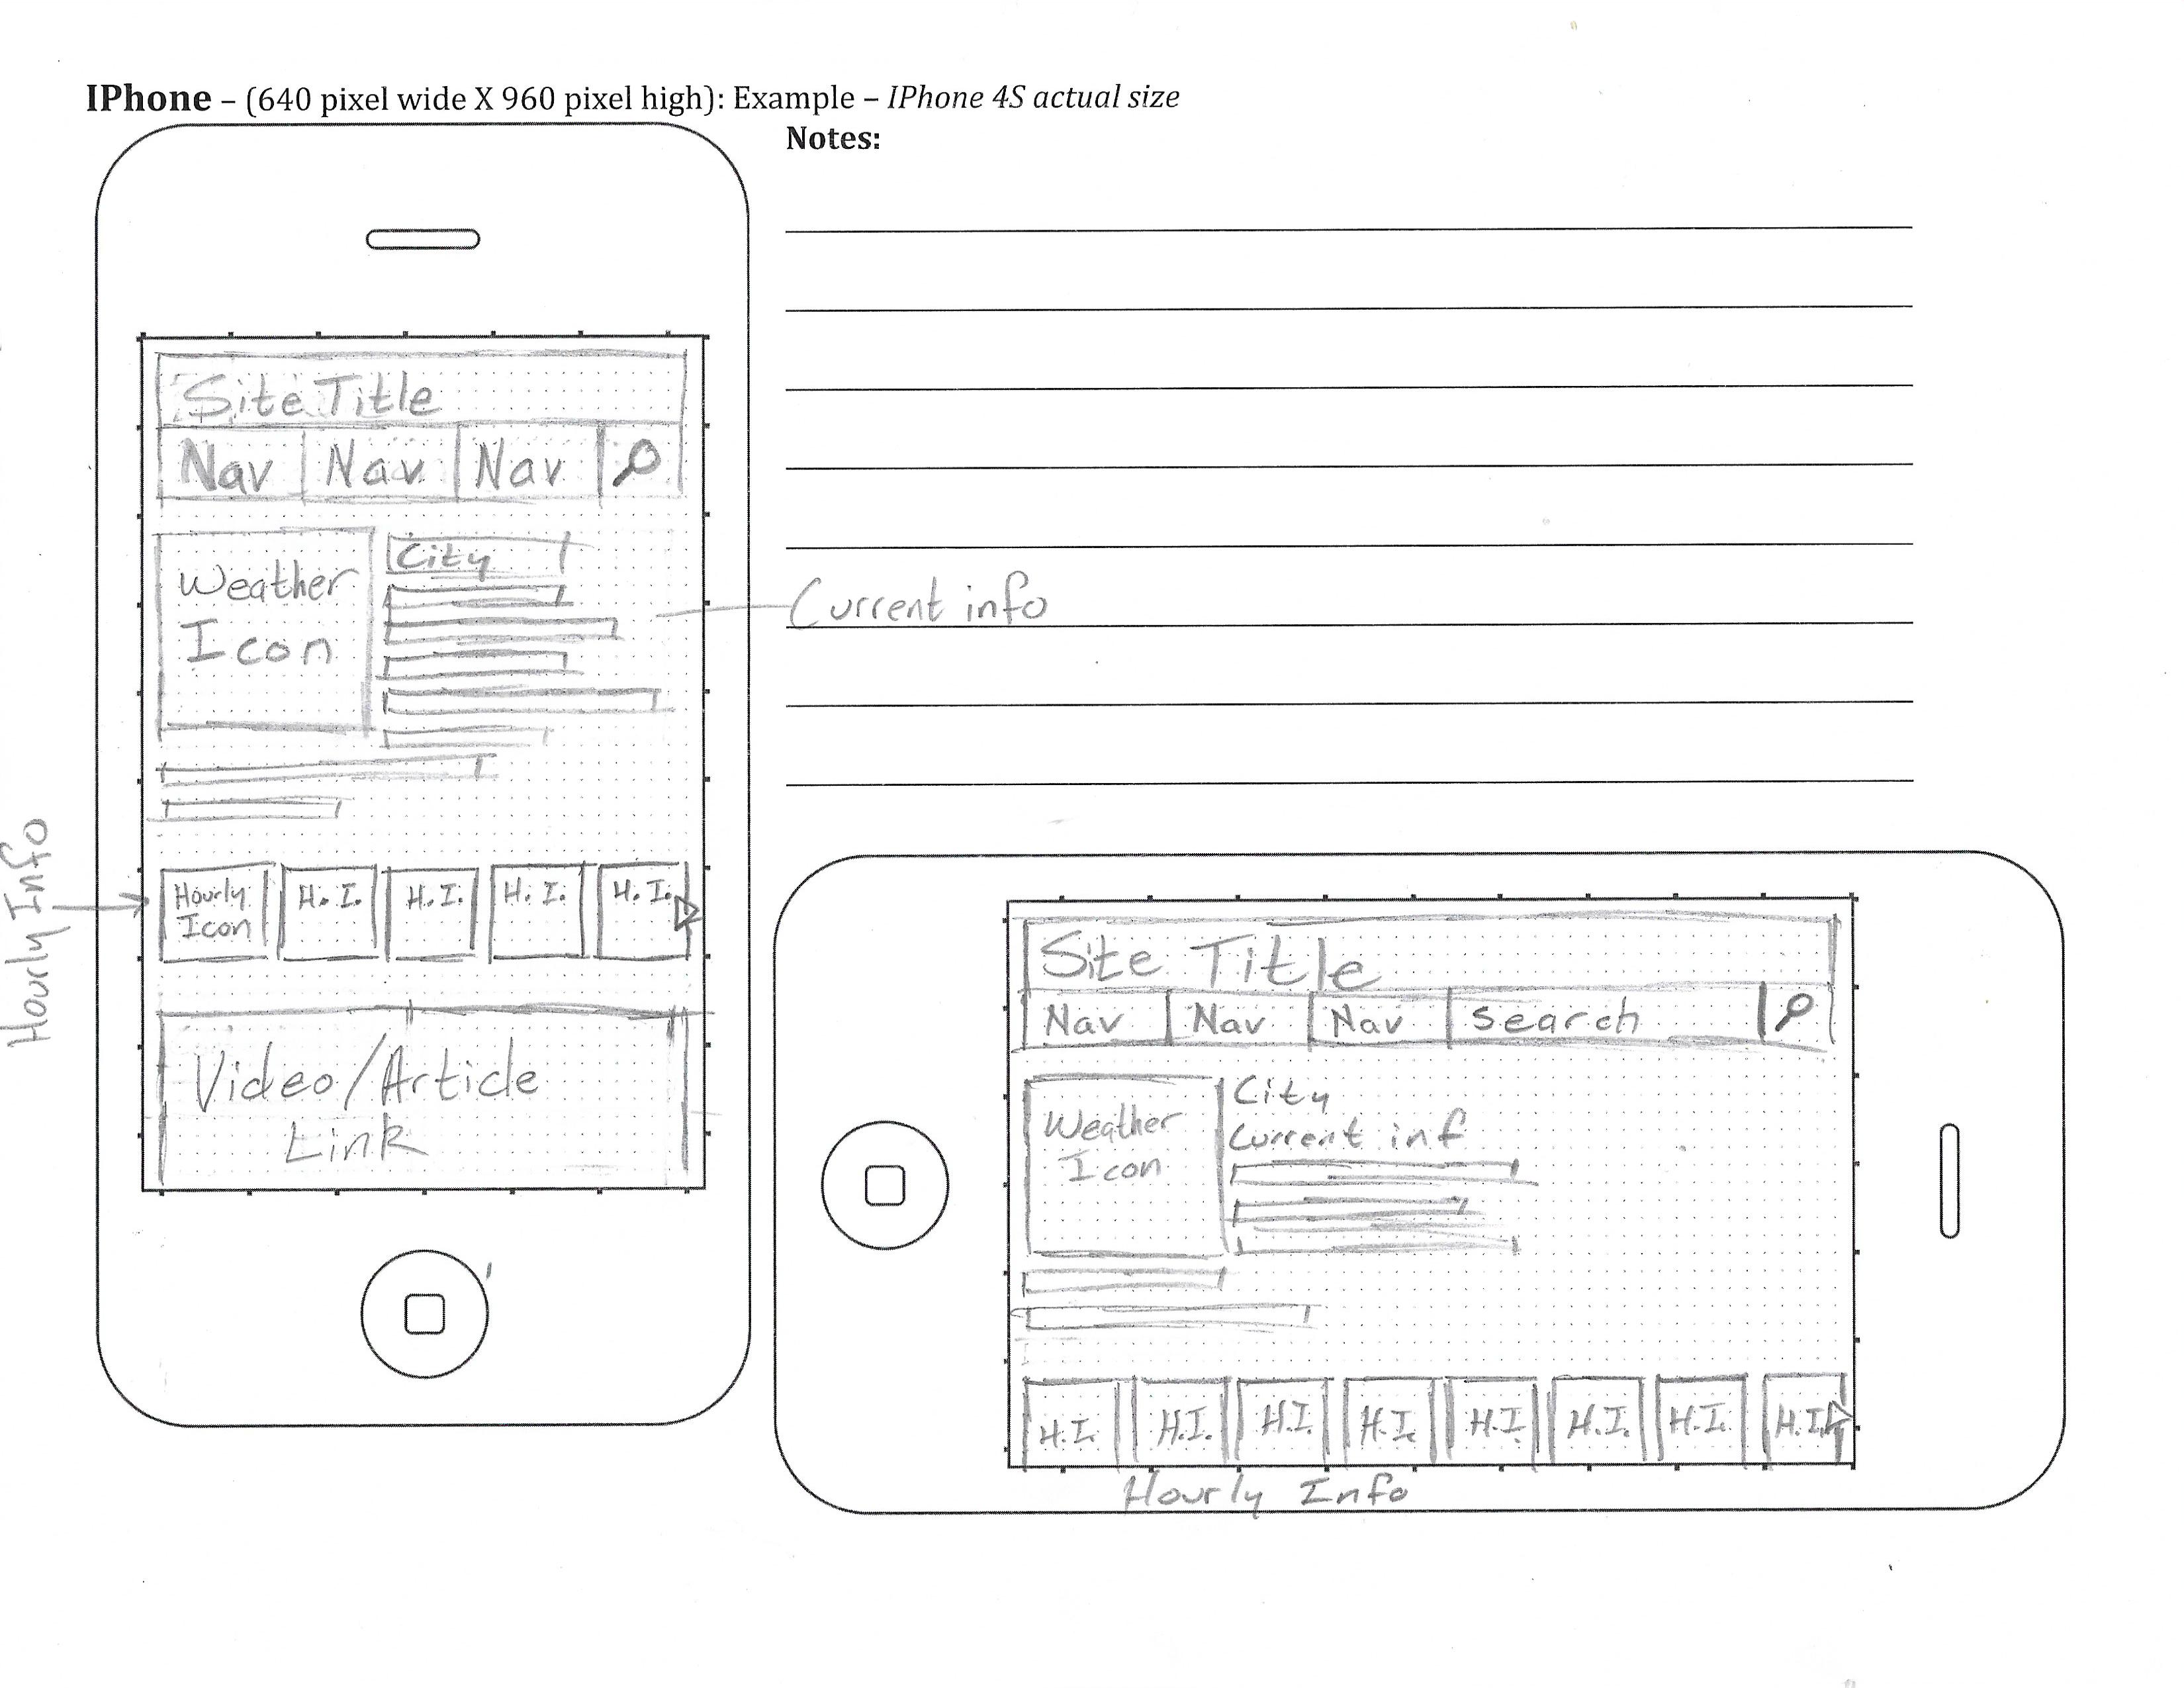 IPhone – (640 pixel wide X 960 pixel high): Example – IPhone 4S actual size
Notes:
Site Title
Nav Nav Nav
Weather
Icon
City
Current info
Hourly Info
Hourly
Icon
H.I. H.I. H.I. H.I.
Video/Article
Link
Site Title
Nav Nav Nav Search
Weather
Icon
City
Current inf
H.I. H.I. H.I. H.I. H.I. H.I. H.I. H.I.
Hourly Info